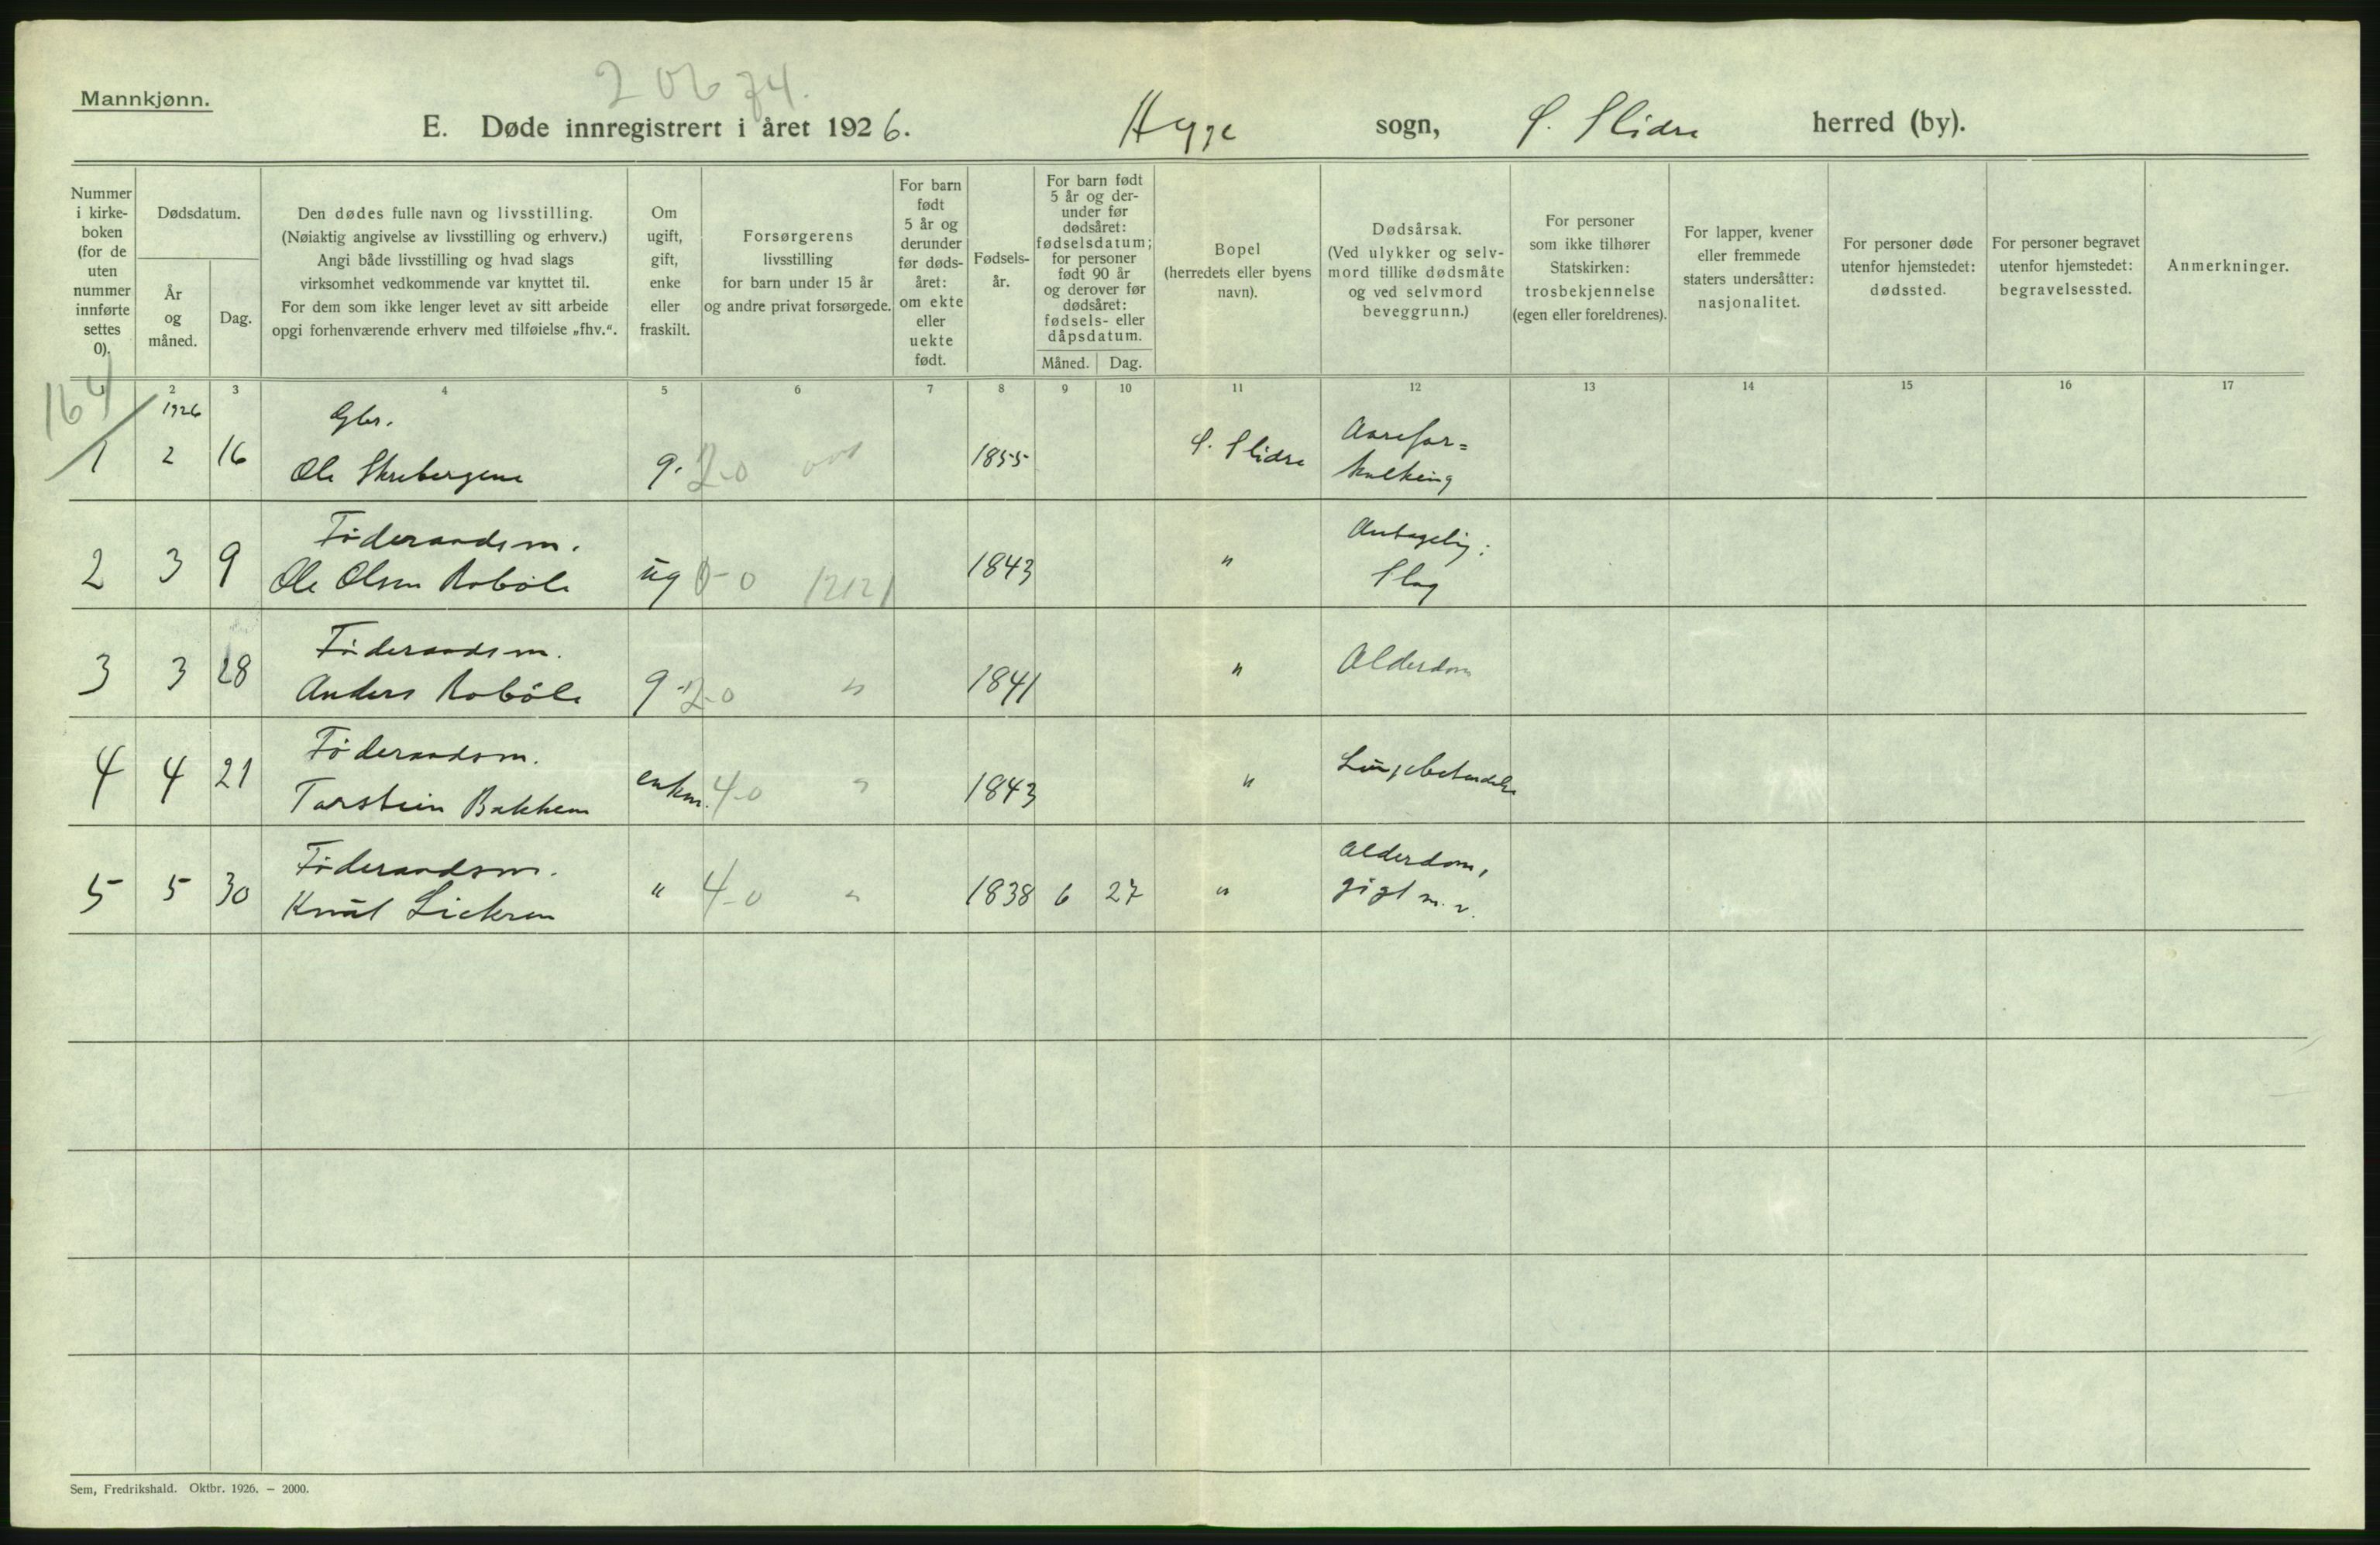 20674.
Mannkjønn.
E. Døde innregistrert i året 1926.
Hegge sogn, S. Slidre herred (by).
Nummer i kirke- boken (for de uten nummer innførte settes 0).
Dødsdatum.
År og måned.
Dag.
Den dødes fulle navn og livsstilling.
(Nøiaktig angivelse av livsstilling og erhverv.)
Angi både livsstilling og hvad slags
virksomhet vedkommende var knyttet til.
For dem som ikke lenger levet av sitt arbeide
opgi forhenværende erhverv med tilføielse „fhv.“.
Om ugift, gift, enke eller fraskilt.
Forsørgerens
livsstilling
for barn under 15 år
og andre privat forsørgede.
For barn født 5 år og derunder før døds- året: om ekte eller uekte født.
Fødsels- år.
For barn født 5 år og der- under før dødsåret: fødselsdatum; for personer født 90 år og derover før dødsåret: fødsels- eller dåpsdatum.
Måned. Dag.
Bopel
(herredets eller byens
navn).
Dødsårsak.
(Ved ulykker og selv-
mord tillike dødsmåte
og ved selvmord
beveggrunn.)
For personer
som ikke tilhører
Statskirken:
trosbekjennelse
(egen eller foreldrenes).
For lapper, kvener
eller fremmede
staters undersåtter:
nasjonalitet.
For personer døde
utenfor hjemstedet:
dødssted.
For personer begravet
utenfor hjemstedet:
begravelsessted.
Anmerkninger.
1 2 3 4 5 6 7 8 9 10 11 12 13 14 15 16 17
164
1926
Gbr.
1 2 16 Ole Skrebergene g. 2-0 1855 S. Slidre Aarefor=
kalking
Föderaadsm.
2 3 9 Ole Olsen Roböle ug 0-0 1212 1843 " Antagelig:
Slag
Föderaadsm.
3 3 28 Anders Roböle g. 2-0 " 1841 " Alderdom
Föderaadsm.
4 4 21 Torstein Bakken enkm. 4-0 " 1843 " Lungebetændelse
Föderaadsm.
5 5 30 Knut " 4-0 " 1838 6 27 " Alderdom,
gigt m. v.
Sem, Fredrikshald. Oktbr. 1926. – 2000.